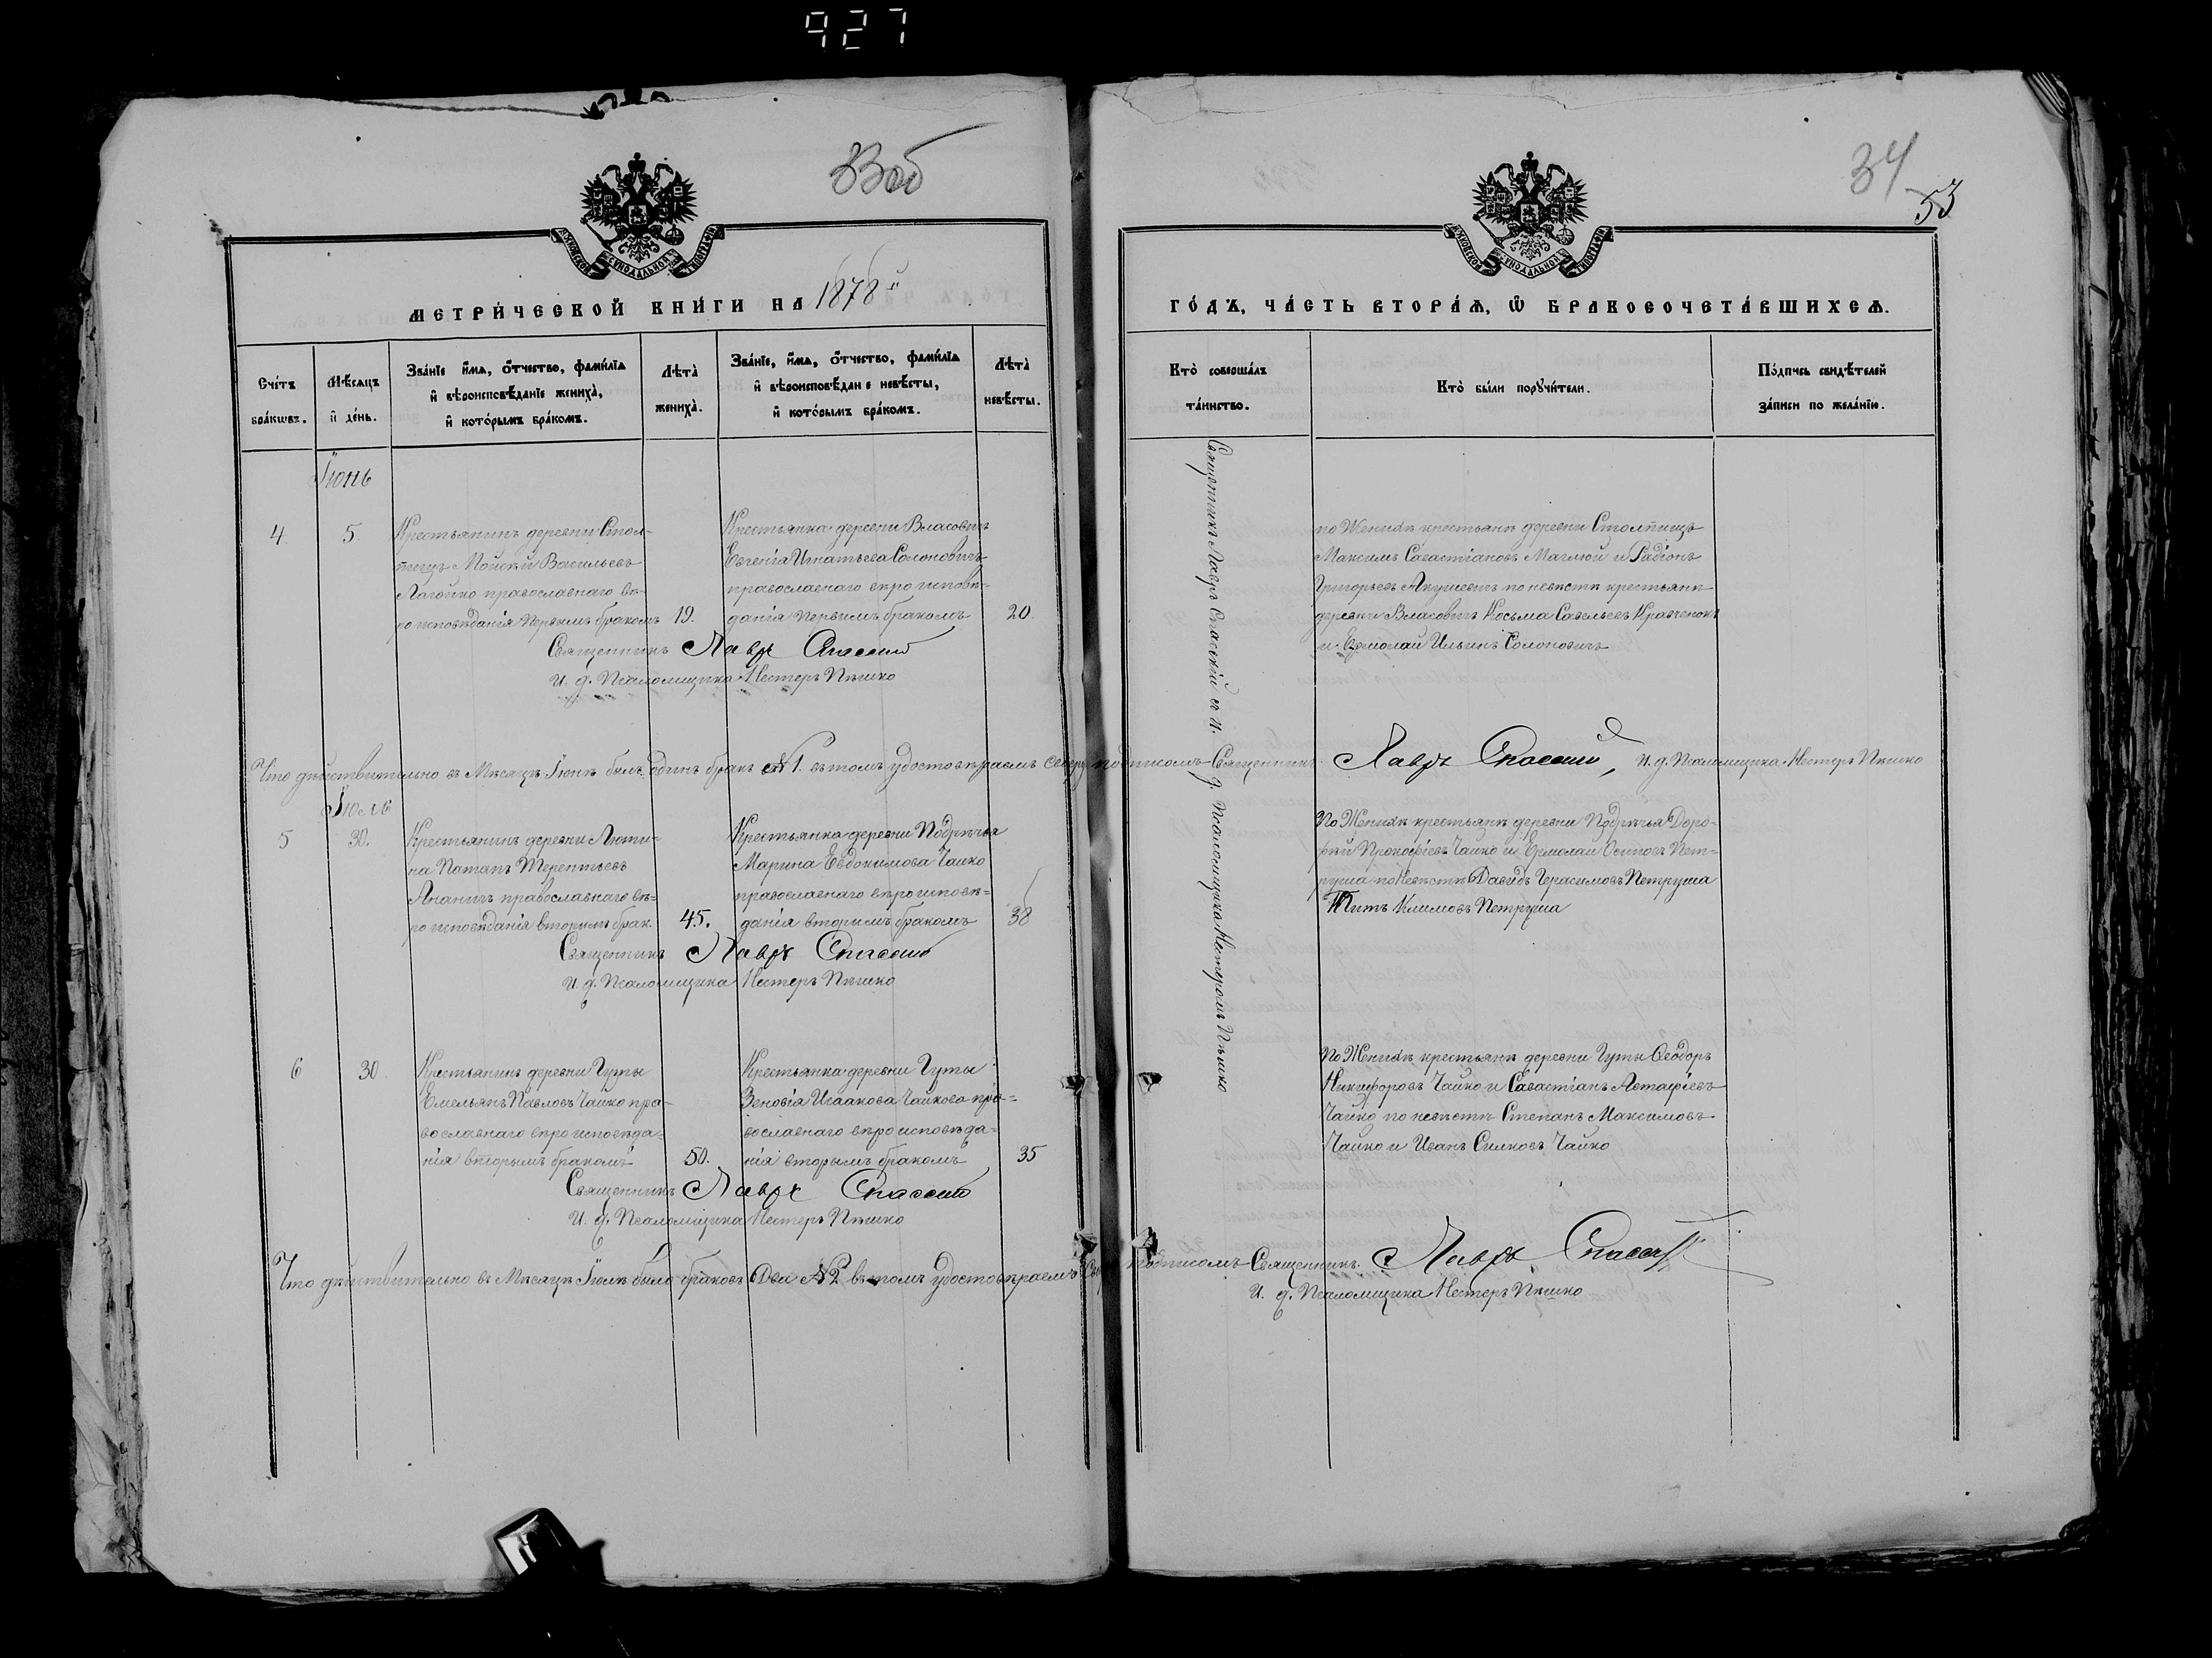 927
33 об
МОСКОВСКОЙ СѴНОДАЛЬНОЙ ТИПОГРАФІИ
МЕТРИ́ЧЕСКОЙ КНИ́ГИ НА 1878й
Сче́тъ бра́кѡвъ.
Мѣ́сяцъ и҆ де́нь.
Зва́нїе и҆́мѧ, ѻ҆́тчество, фами́лїа
и҆ вѣроисповѣ́данїе жениха̀,
и҆ кото́рымъ бра́комъ.
Лѣта̀ жениха̀.
Зва́нїе, и҆́мѧ, ѻ҆́тчество, фами́лїа
и҆ вѣроисповѣ́дан е невѣ́сты,
и҆ кото́рымъ бра́комъ.
Лѣта̀ невѣ́сты.
Іюнь
4
5
Крестьянинъ деревни Стол-
пищъ Мойсій Васильевъ
Лагойко православнаго вѣ-
роисповѣданія первымъ бракомъ
19.
Крестьянка деревни Власовичъ
Евгенія Игнатьева Солоновичъ
православнаго вѣроисповѣ-
данія первымъ бракомъ
20
Священникъ Лавръ Спасскій
И. д. Псаломщика Нестеръ Пѣшко
Что дѣйствительно въ Мѣсяцѣ Іюнѣ былъ одинъ бракъ №1. въ томъ удостовѣряемъ своеру
Іюль
5
30.
Крестьянинъ деревни Люти-
на Потапъ Терентьевъ
Ананичъ православнаго вѣ=
роисповѣданія вторымъ брак.
45.
Крестьянка деревни Подрѣчья
Марина Евдокимова Чайко
православнаго вѣроисповѣ=
данія вторымъ бракомъ
38
Священникъ Лавръ Спасскій
И. д. Псаломщика Нестеръ Пѣшко
6
30
Крестьянинъ деревни Гуты
Емельянъ Павловъ Чайко пра-
вославнаго вѣроисповѣда=
нія вторымъ бракомъ
50.
Крестьянка деревни Гуты
Зеновія Исаакова Чайкова пра=
вославнаго вѣроисповѣда=
нія вторымъ бракомъ
35
Священникъ Лавръ Спасскій
И. д. Псаломщика Нестеръ Пѣшко
Что дѣйствительно въ Мѣсяцѣ Іюлѣ было браковъ Два №2 въ томъ удостовѣряемъ
34
53
МОСКОВСКОЙ СѴНОДАЛЬНОЙ ТИПОГРАФІИ
ГО́ДЪ, ЧА́СТЬ ВТОРА́Ѧ, Ѡ҆ БРАКОСОЧЕТА́ВШИХСѦ.
Кто̀ соверша́лъ
та́инство.
Кто̀ бы́ли порꙋчи́тели.
По́дпись свидѣ́телей
за́писи по жела́нїю.
Священникъ Лавръ Спасскій съ И. д. Псаломщика Нестеромъ Пѣшко
по Женихѣ крестьяне деревни Столпищъ
Максимъ Савастіановъ Маглюй и Радіонъ
Григорьевъ Якушевичъ по невѣстѣ крестьяне
деревни Власовичъ Косьма Савельевъ Кравченокъ
и Ермолай Ильинъ Солоновичъ
подписомъ Священникъ Лавръ Спасскій, И. д. Псаломщика Нестеръ Пѣшко
По Женихѣ крестьяне деревни Подрѣчья Доро-
фей Прокофіевъ Чайко и Ермолай Осиповъ Пет-
руша по Невѣстѣ Давидъ Герасимовъ Петруша
Титъ Климовъ Петруша
По Женихѣ крестьяне деревни Гуты Ѳеодоръ
Никифоровъ Чайко и Савастіанъ Астафіевъ
Чайко по невѣстѣ Степанъ Максимовъ
Чайко и Иванъ Силковъ Чайко
подписомъ Священникъ. Лавръ Спасскій
И. д. Псаломщика Нестеръ Пѣшко